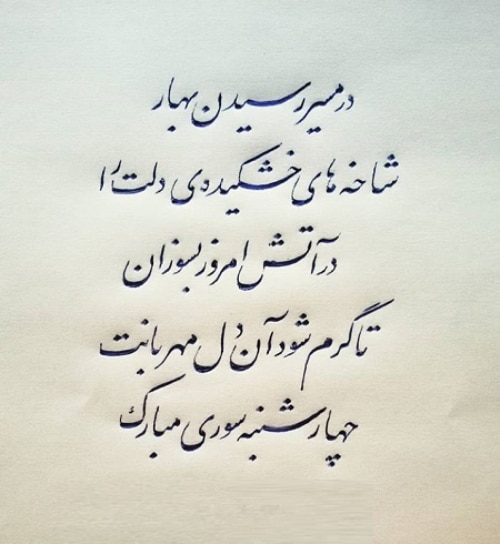 در مسیر رسیدن بهار
شاخه های خشکیده ی دلت را
در آتش امروز بسوزان
تا گرم شود آن دل مهربانت
چهارشنبه سوری مبارک